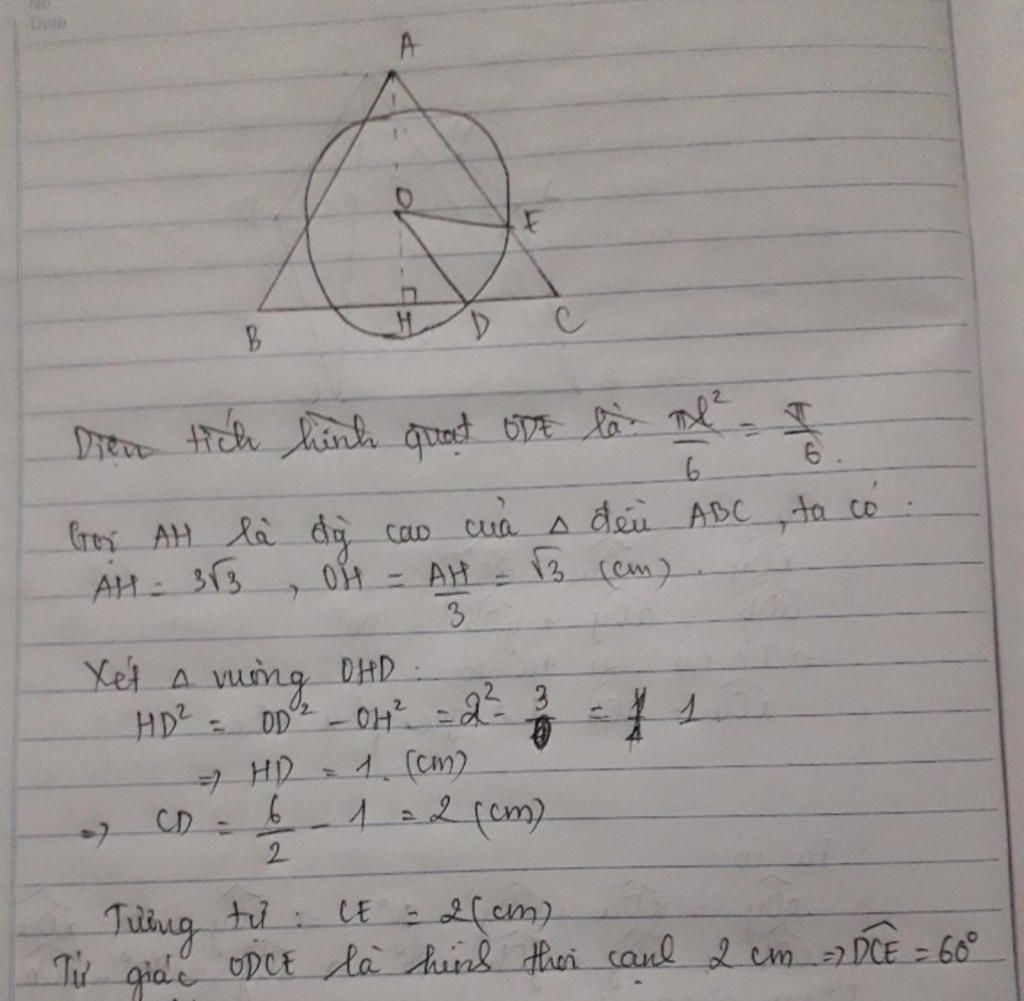 No
Date
A
O
E
B
H
D
C
Diện tích hình quạt ODE là: πl²/6 = π/6.
Gọi AH là đg cao của Δ đều ABC, ta có:
AH = 3√3, OH = AH/3 = √3 (cm).
Xét Δ vuông OHD:
HD² = OD² - OH² = 2² - 3 = 1
=> HD = 1. (cm)
=> CD = 6/2 - 1 = 2 (cm)
Tương tự: CE = 2 (cm)
Tứ giác ODCE là hình thoi cạnh 2 cm => DCE = 60°